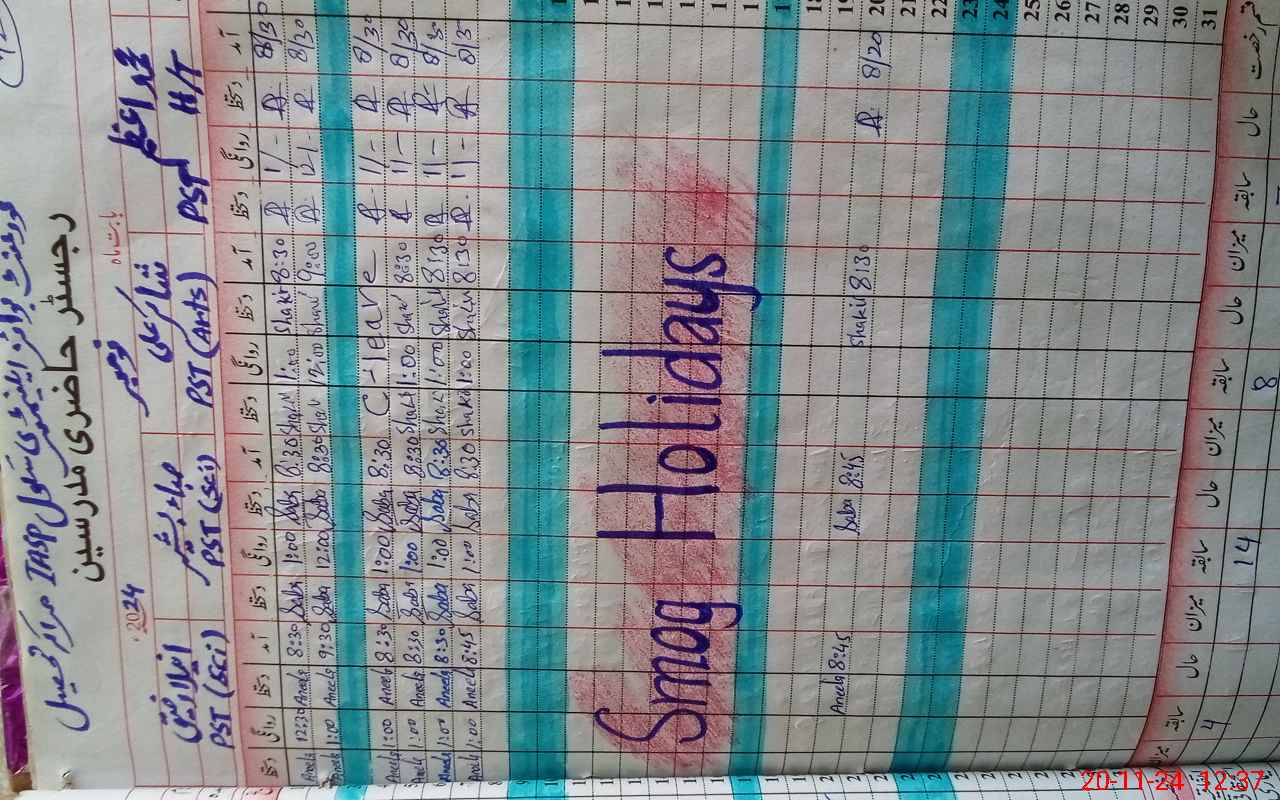 رجسٹر حاضری مدرسین
2024 نومبر بابت ماہ
PST (Sci) PST (Sci) PST (Arts) PST H/T
دستخط روانگی دستخط آمد دستخط روانگی دستخط آمد دستخط روانگی دستخط آمد دستخط روانگی دستخط آمد
Aneela 12:30 Aneela 8:30 Saba 1:00 Saba 8:30 Shakil 1:00 Shakil 8:30 1/- 8/30
Aneela 1:00 Aneela 9:30 Saba 12:00 Saba 8:30 Shakil 12:00 Shakil 9:00 12/- 8/30
Aneela 1:00 Aneela 8:30 Saba 1:00 Saba 8:30 C-leave 11- 8/30
Aneela 1:00 Aneela 8:30 Saba 1:00 Saba 8:30 Shakil 1:00 Shakil 8:30 11- 8/30
Aneela 1:00 Aneela 8:30 Saba 1:00 Saba 8:30 Shakil 1:00 Shakil 8:30 11- 8/30
Aneela 1:00 Aneela 8:45 Saba 1:00 Saba 8:30 Shakil 1:00 Shakil 8:30 11- 8/30
Smog Holidays
18
19
Aneela 8:45 Saba 8:45 Shakil 8:30 8/20 20
21
22
23
24
25
26
27
28
29
30
31
میزان سابقہ حال میزان سابقہ حال میزان سابقہ حال میزان سابقہ حال قسم رخصت
4 14 8
20-11-24 12:37